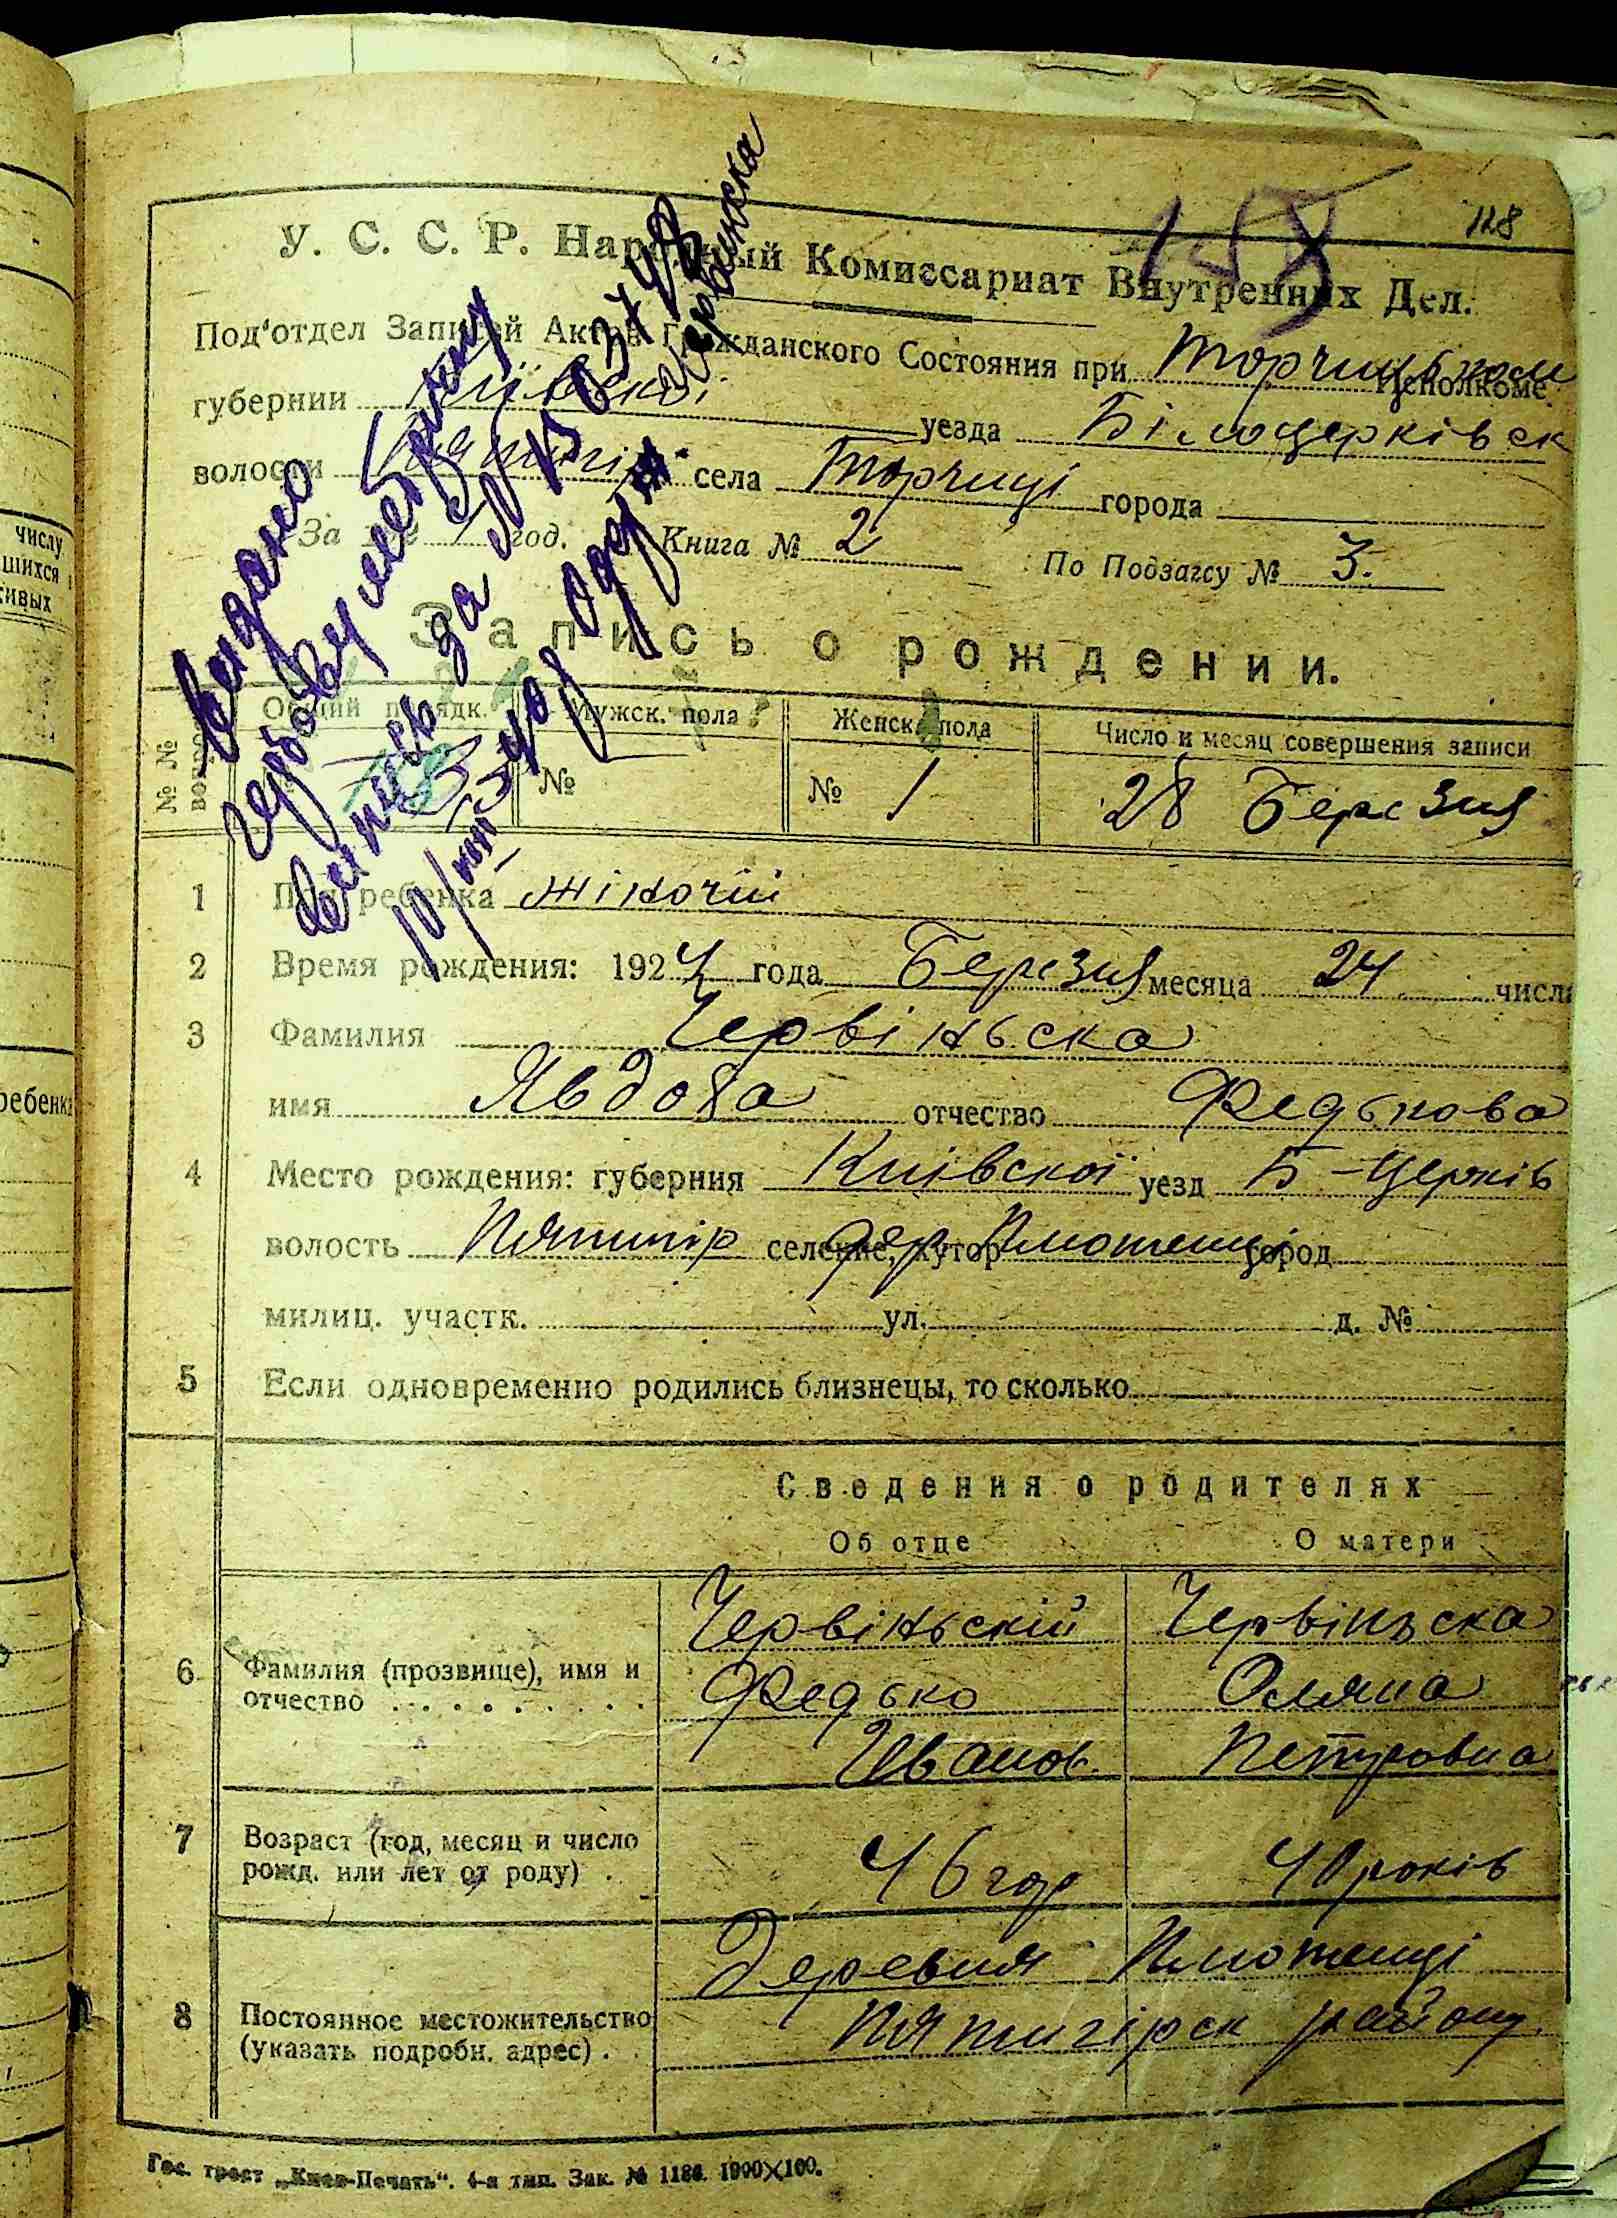 128
У. С. С. Р. Народный Комиссариат Внутренних Дел.
Под'отдел Записей Актов Гражданского Состояния при Торчицьком Исполкоме
губернии Київскої уезда Білоцерківск
волости села Торчиці города
За 192 4 год. Книга № 2 По Подзагсу № 3.
Запись о рождении.
№ № вопро Общий порядк. Мужск. пола Женск. пола Число и месяц совершения записи
№ № 1 28 Березня
Видано
гербову метрику
випись за № 150374
10/ 40 р одерж.
Червинска
1 Пол ребенка жіночій
2 Время рождения: 1924 года Березня месяца 24 числа
3 Фамилия Червіньска
имя Явдоха отчество Федькова
4 Место рождения: губерния Київскої уезд Б-Церків
волость Пятигір селение, хутор дер город
милиц. участк. ул. д. №
5 Если одновременно родились близнецы, то сколько
Сведения о родителях
Об отце О матери
Червіньскій Червіньска
6 Фамилия (прозвище), имя и Федько Оляна
отчество Иванов. Петровна
7 Возраст (год, месяц и число 46 год 40 років
рожд. или лет от роду)
Деревня
8 Постоянное местожительство Пятигірск району
(указать подробн. адрес)
Гос. трест „Киев-Печать“. 4-я тип. Зак. № 1186. 1900×100.
числу
шихся
живых
ребенка